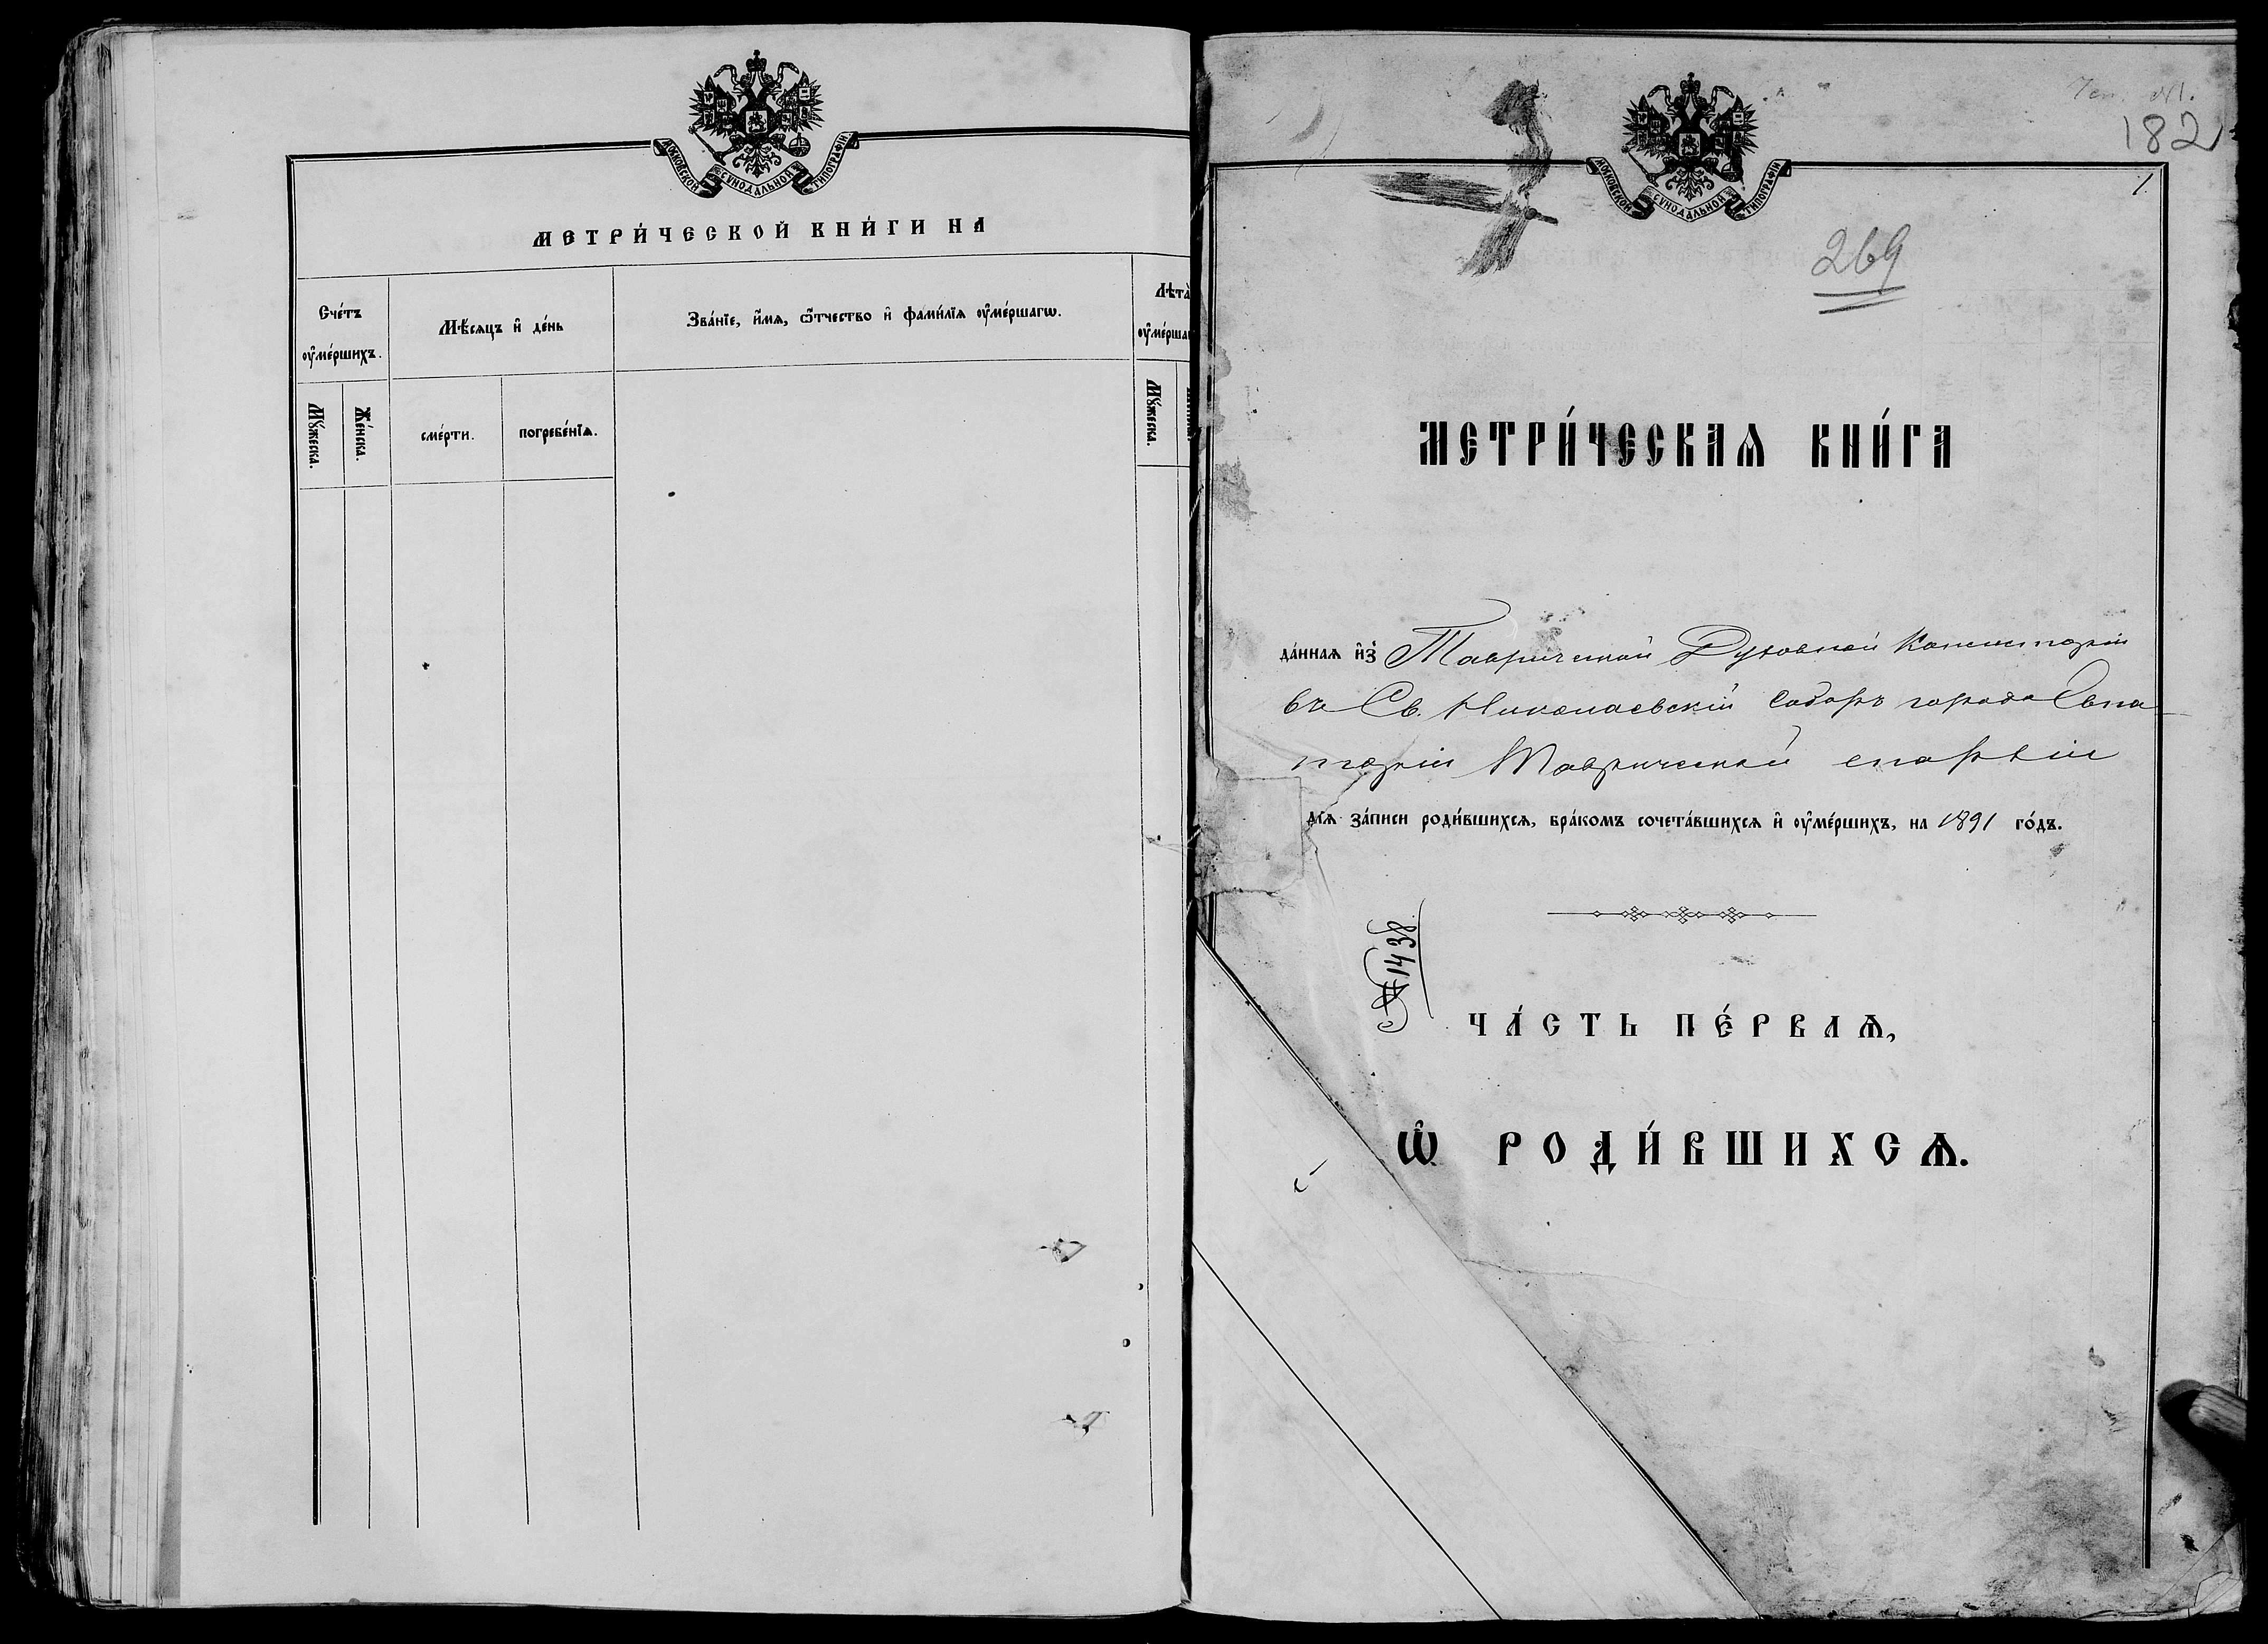 МОСКОВСКОЙ СѴНОДАЛЬНОЙ ТИПОГРАФІИ
МЕТРИ́ЧЕСКОЙ КНИ́ГИ НА
Сче́тъ
ᲂу҆ме́ршихъ.
Мѣ́сяцъ и҆ де́нь
Зва́нїе, и҆́мѧ, ѻ҆́тчество и҆ фами́лїѧ ᲂу҆ме́ршагѡ.
Лѣта̀
ᲂу҆ме́рша
Мꙋ́жеска.
Же́нска.
сме́рти.
погребе́нїѧ.
Мꙋ́жеска.
182
МОСКОВСКОЙ СѴНОДАЛЬНОЙ ТИПОГРАФІИ
1.
269
МЕТРИ́ЧЕСКАѦ КНИ́ГА
да́ннаѧ и҆з̾ Таврической Духовной Консисторіи
въ Св. Николаевскій Соборъ города Евпа-
торіи Таврической епархіи
длѧ за́писи роди́вшихсѧ, бра́комъ сочета́вшихсѧ и҆ ᲂу҆ме́ршихъ, на 1891 го́дъ.
№ 1438
ЧА́СТЬ ПЕ́РВАѦ,
Ѡ҆ РОДИ́ВШИХСѦ.